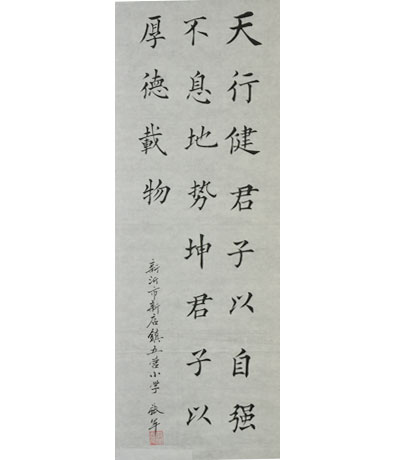 天行健君子以自强
不息地势坤君子以
厚德載物
新沂市新店鎮五营小学